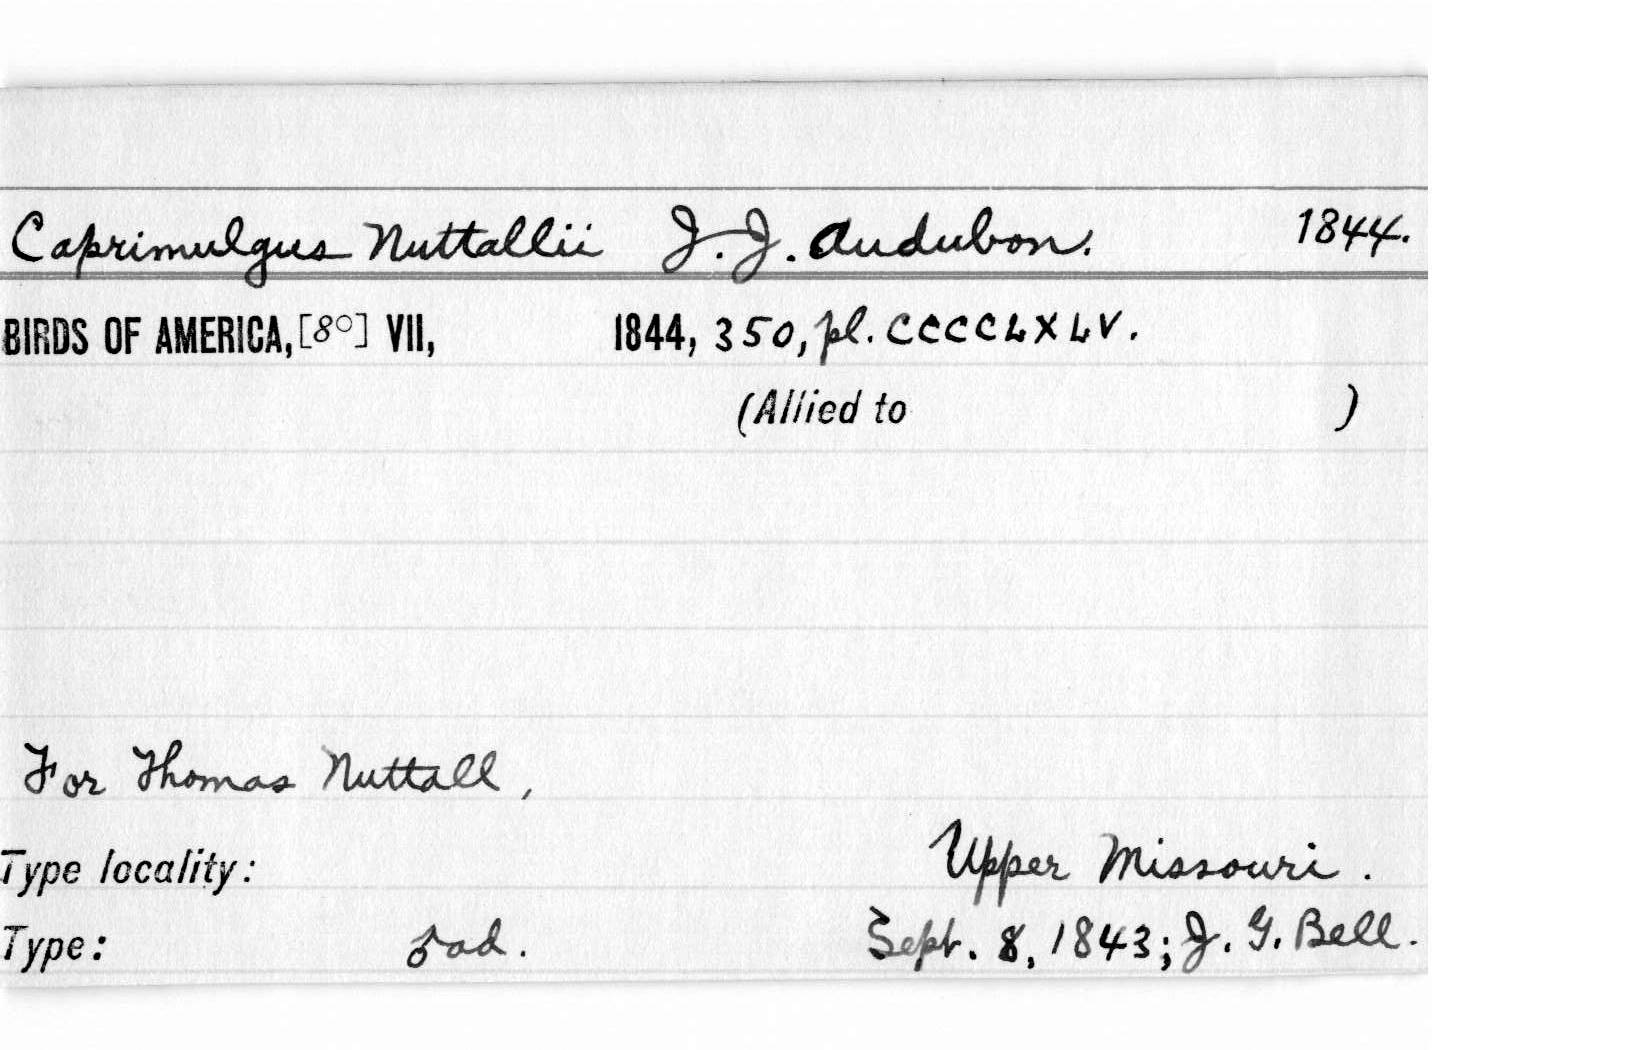 Caprimulgus Nuttallii J. J. Audubon. 1844.
BIRDS OF AMERICA, [8°] VII, 1844, 350, pl. CCCCLXLV.
(Allied to )
For Thomas Nuttall,
Type locality: Upper Missouri.
Type: ♂ad. Sept. 8, 1843; J. G. Bell.